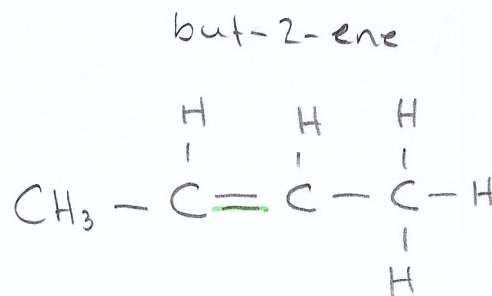 but-2-ene
H H H
CH₃ - C = C - C - H
H